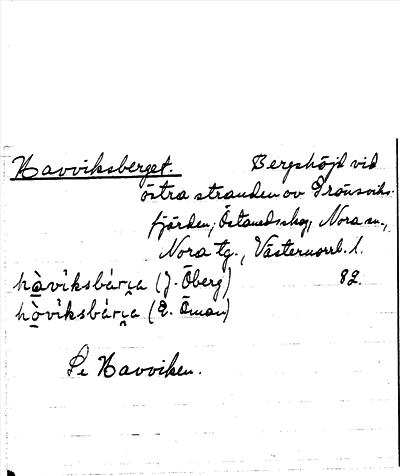 Havviksberget. Bergshöjd vid
östra stranden av Grönsviks-
fjärden, Östanedskog, Nora sn.,
Nora tg., Västernorrl. l.
hàvìksbárɩ̯a (J. Öberg) 82.
hòvìksbárɩ̯a (E. Öman)
Se Havviken.